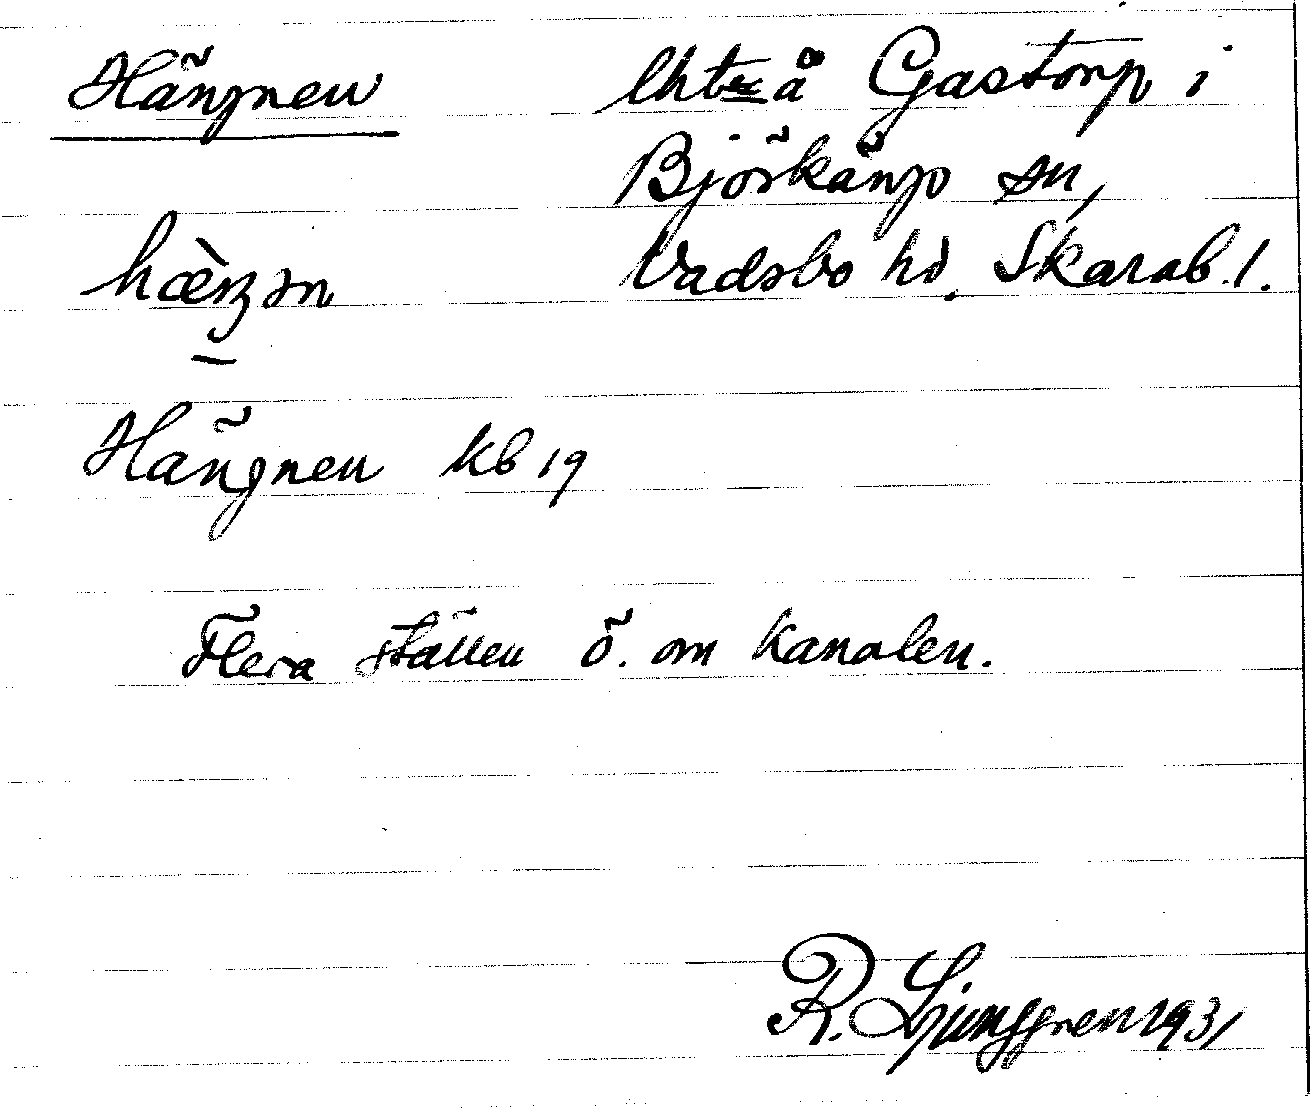 Hängnen
lht å Gastorp i
Björkängs sn,
Vadsbo hd. Skarab. l.
Hängnen kb 19
Flera ställen ö. om kanalen.
R. Ljunggren 1931